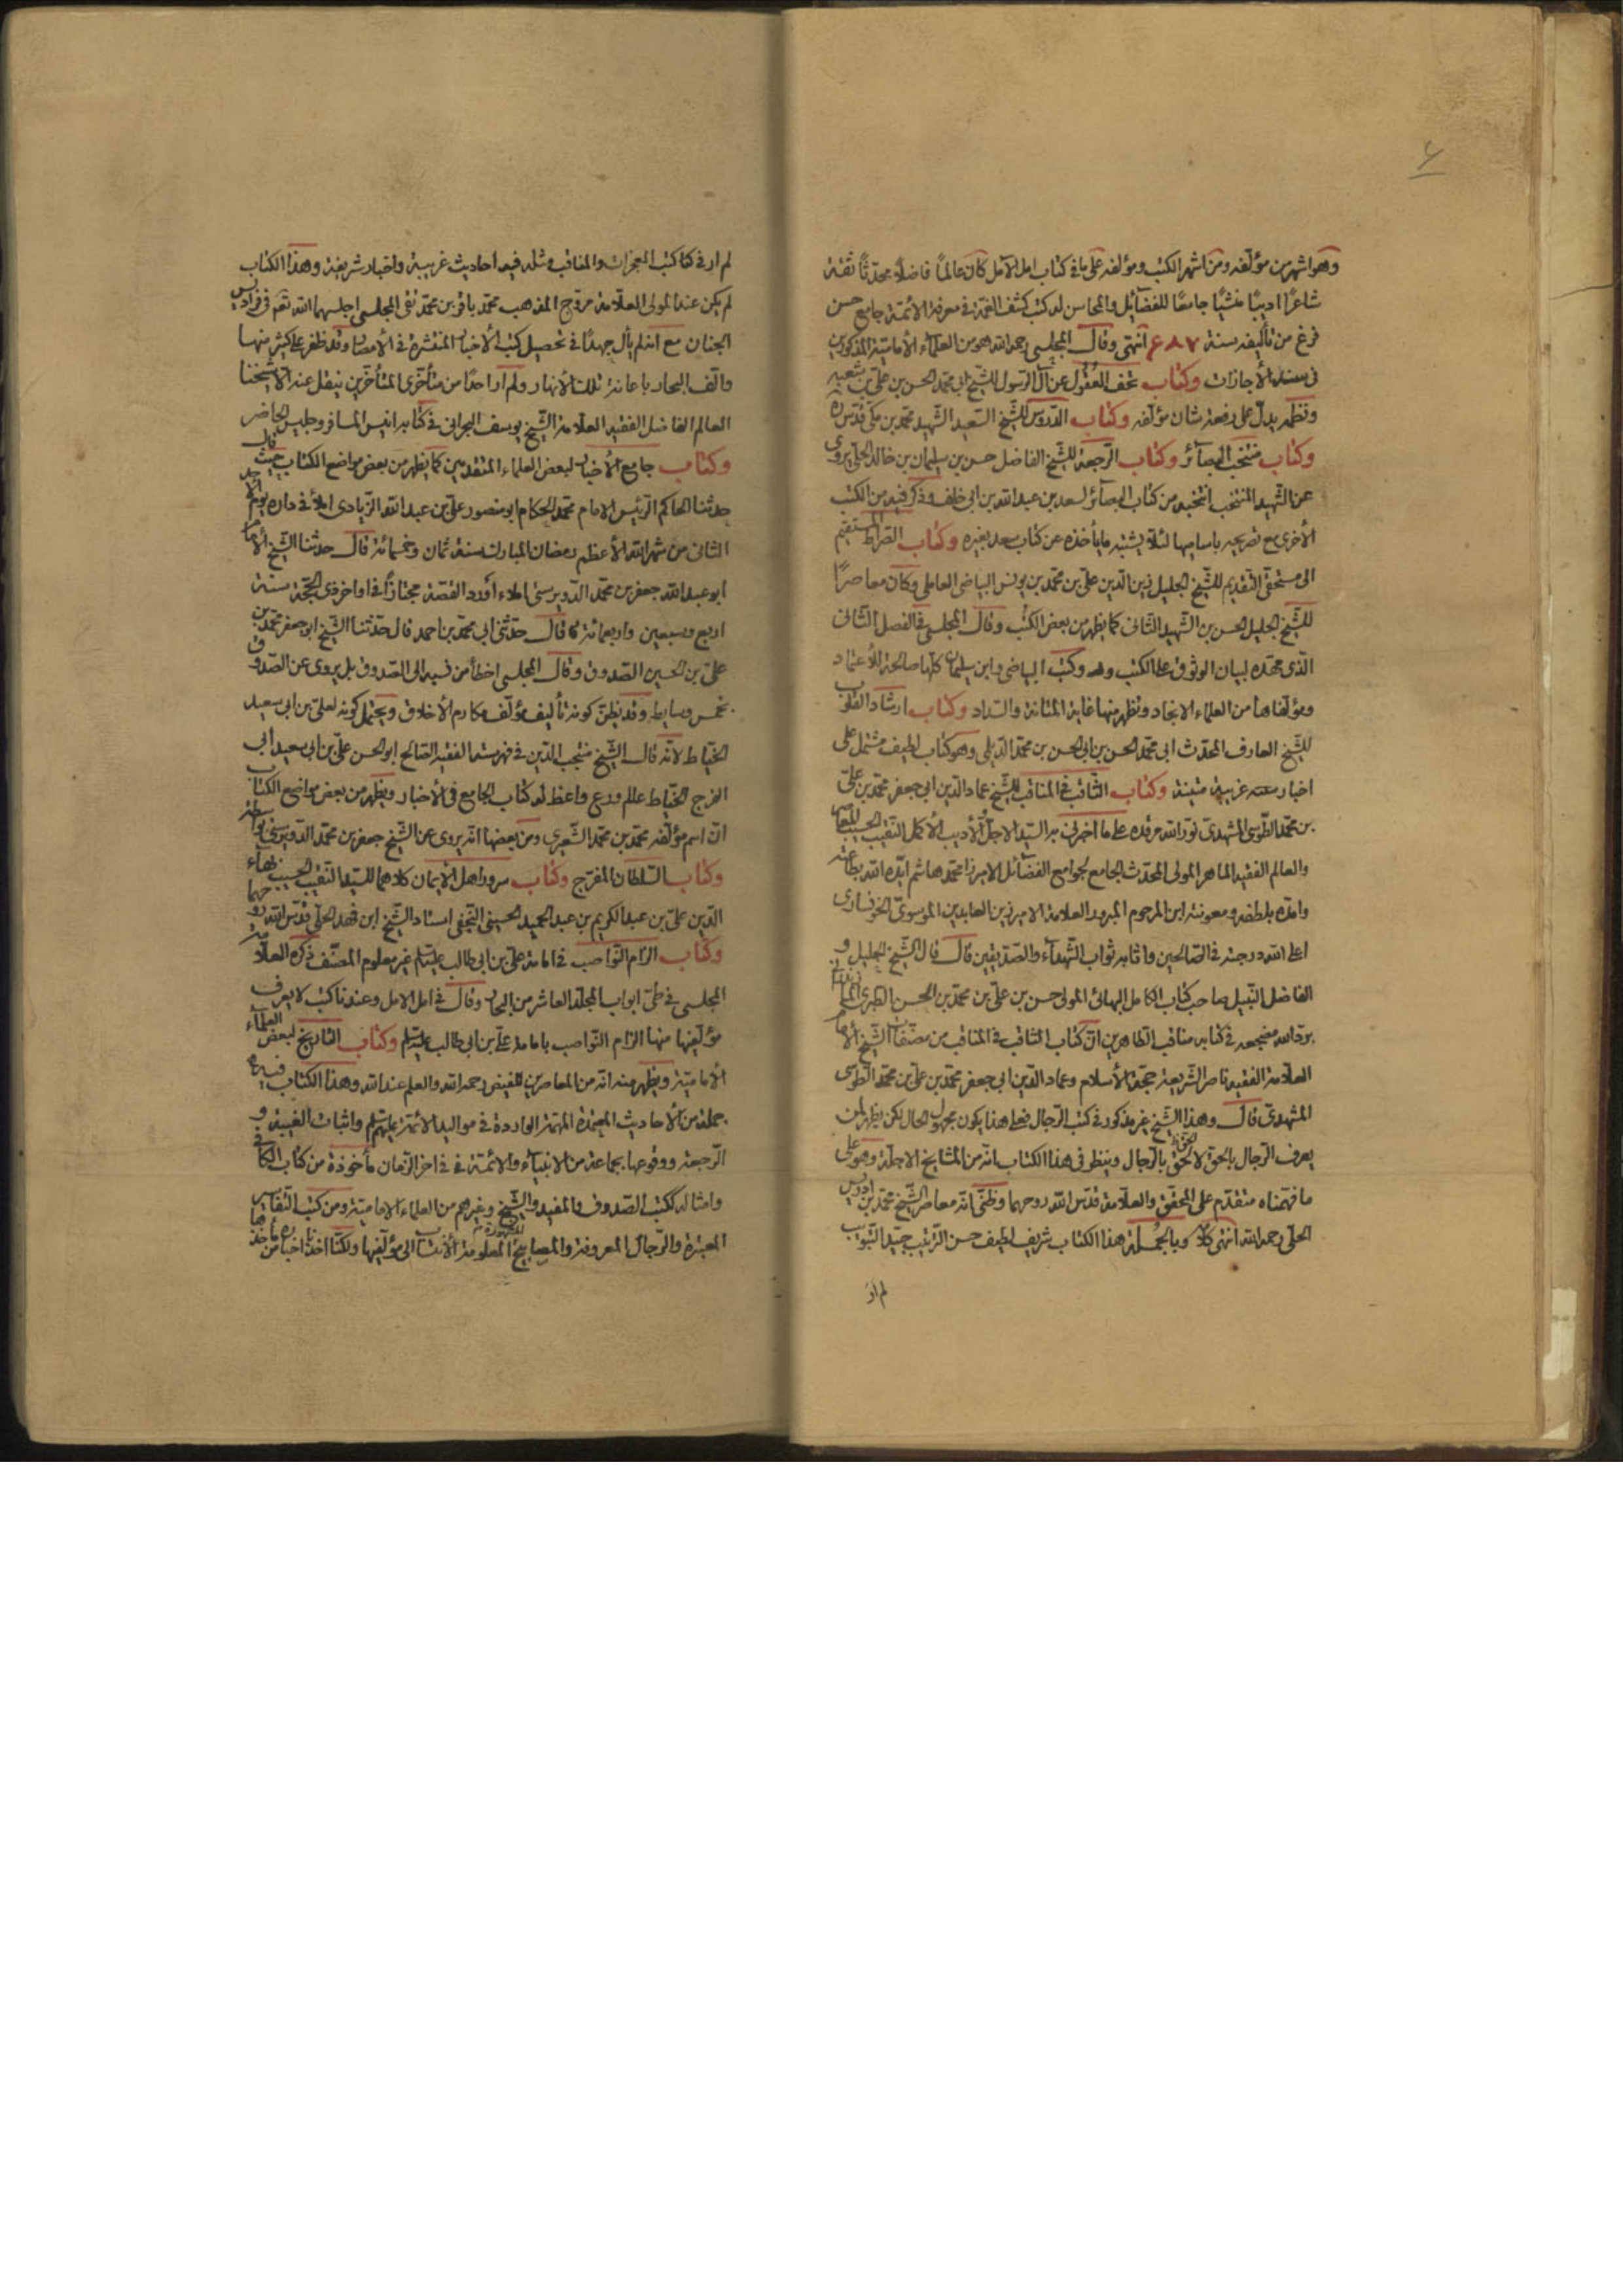 ۶
وهو اشهر من مؤلفه ومن اشهر الكتب ومؤلفه على ما فى كتاب امل الآمل كان عالماً فاضلاً محدثاً ثقة
شاعرًا اديبًا منشيًا جامعًا للفضائل والمحاسن له كتب كشف الغمة فى معرفة الائمة جامع حسن
فرغ من تأليفه سنة ۶۸۷ انتهى وقال المجلسى رحمه الله هو من العلماء الأمامية المذكورين
فى سند الأجازات وكتاب تحف العُقُول عن آل الرسول للشيخ ابى محمد الحسن بن على بن شعبه
ونظمه يدلّ على رفعة شان مؤلفه وكتاب الدروس للشيخ السعيد الشهيد محمد بن مكى قدس سره
وكتاب منتخب البصآئر وكتاب الرّجعة للشيخ الفاضل حسن بن سليمان بن خالد الحلى يروى
عن الشهيد المنتخب انتخبه من كتاب البصآئر لسعد بن عبد الله بن ابى خلف وذكر فيه من الكتب
الأخرى مع تصريحه باساميها لئلا يشتبه ما يأخذه عن كتاب سعد بغيره وكتاب الصراط المستقيم
الى مستحقى التقديم للشيخ الجليل زين الدين على بن محمد بن يونس البياضى العاملى وكان معاصرًا
للشيخ الجليل الحسن بن الشهيد الثانى كما يظهر من بعض الكتب وقال المجلسى فى الفصل الثانى
الذى مهّده لبيان الوثوق على الكتب وكتب البياضى وابن سليمان كلها صالحة للأعتماد
ومؤلفاها من العلماء الانجاد وتظهر منها غاية المتانة والسداد وكتاب ارشاد القلوب
للشيخ العارف المحدث ابى محمد الحسن بن ابى الحسن بن محمد الديلمى وهو كتاب لطيف مشتمل على
اخبار غريبة متينة وكتاب الثّاقب فى المناقب للشيخ عماد الدين ابى جعفر محمد بن على
بن محمد الطوسى المشهدى نور الله مرقده على ما اخبرنى به السيد الاجلّ الأديب الأكمل النقيب الحسيب
والعالم الفقيه الماهر المولى المحدث الجامع لجوامع الفضائل الامير زا محمد هاشم ايده الله بطاعته
وامدّه بلطفه ومعونته ابن المرحوم المبرور العلامة الامير زين العابدين الموسوى الخونسارى
اعلى الله درجته فى الصالحين واثابه ثواب الشهدآء والصديقين قال قال الشيخ الجليل و
الفاضل النبيل صاحب كتاب الكامل البهائى المولى حسن بن على بن محمد بن الحسن الطبرى
برد الله مضجعه فى كتابه مناقب الطاهرين ان كتاب الثاقب فى المناقب من مصنفات الشيخ الأمام
العلامة الفقيه ناصر الشريعة حجة الأسلام وعماد الدين ابى جعفر محمد بن على بن محمد الطوسى
المشهدى قال وهذا الشيخ غير مذكور فى كتب الرجال فعلى هذا يكون مجهول الحال لكن يظهر لمن
يعرف الرجال بالحق لا الحق بالرجال وينظر فى هذا الكتاب انه من المشايخ الاجلة وهو على
ما فهمناه متقدم على المحقق والعلامة قدس الله روحهما وظنى انه معاصر الشيخ محمد بن ادريس
الحلى رحمه الله انتهى كلامه وبالجُملة هذا الكتاب شريف لطيف حسن الترتيب جيد التبويب
لم ار
لم ار فى كتب المعجزات والمناقب مثله فيه احاديث غريبة واخبار شريفة وهذا الكتاب
لم يكن عند المولى العلامة مروج المذهب محمد باقر بن محمد تقى المجلسى اجلسهما الله تعم فى فراديس
الجنان مع انه لم يأل جهدًا فى تحصيل كتب الأخبار المنتشرة فى الأمصار وقد ظفر على كثير منها
والّف البحار باعانة تلك الأنهار ولم ار احدًا من متأخرى المتأخرين ينقل عنه الا شيخنا
العالم الفاضل الفقيه العلامة الشيخ يوسف البحرانى فى كتابه انيس المسافر وجليس الحاضر
وكتاب جامع الأخبار لبعض العلماء المتقدمين كما يظهر من بعض مواضع الكتاب حيث قال
حدثنا الحاكم الرئيس الامام محمد الحكام ابو منصور على بن عبد الله الزيادى املأ فى داره يوم الأحد
الثانى من شهر الله الأعظم رمضان المبارك سنة ثمان وخمسائة قال حدثنا الشيخ الأمام
ابو عبد الله جعفر بن محمد الدويرستى املاء أورد القصة مجتازاً فى اواخر ذى الحجة سنة
اربع وسبعين واربعمائة قال حدثنى ابى محمد بن احمد قال حدثنا الشيخ ابو جعفر محمد بن
على بن الحسين الصدوق وقال المجلسى اخطأ من نسبه الى الصدوق بل يروى عن الصدوق
بخمس وسايط وقد يظن كونه تأليف مؤلف مكارم الأخلاق ويحتمل كونه لعلى بن ابى سعيد
الخياط لانه قال الشيخ منتجب الدين فى فهرسته الفقيه الصالح ابو الحسن على بن ابى سعيد ابى
الفرج الخياط عالم ورع واعظ له كتاب الجامع فى الأخبار ويظهر من بعض مواضع الكتاب
ان اسم مؤلفه محمد بن محمد الشعيرى ومن بعضها انه يروى عن الشيخ جعفر بن محمد الدويرستى بواسطة
وكتاب السلطان المفرج وكتاب سرور اهل الأيمان كلاهما للسيد النقيب الحسيب بهاء
الدين على بن عبد الكريم بن عبد الحميد الحسينى النجفى استاد الشيخ ابن فهد الحلى قدس الله روحهما
وكتاب الزام النواصب فى امامة على بن ابى طالب عليه السلم غير معلوم المصنف ذكره العلامة
المجلسى فى طىّ ابواب المجلد العاشر من البحار وقال فى امل الامل وعندنا كتب لا يعرف
مؤلفيها منها الزام النواصب بامامة على بن ابى طالب عليه السلم وكتاب التاريخ لبعض العلماء
الأمامية ويظهر منه انه من المعاصرين للمفيد رحمه الله والعلم عند الله وهذا الكتاب فيه
جملة من الأحاديث المعتبرة المهمة الواردة فى مواليد الائمة عليهم السلم واثبات الغيبة و
الرجعة ووقوعها بجماعة من الانبيآء والائمة فى اخر الزمان مأخوذة من كتاب الكافى
وامثاله ككتب الصدوق والمفيد والشيخ وغيرهم من العلماء الامامية ومن كتب التفاسير
المعتبرة والرجال المعروفة والمصابيح المشهورة المعلومة الأنتساب الى مؤلفيها ولكنا اخذنا اخبار من مأخذها